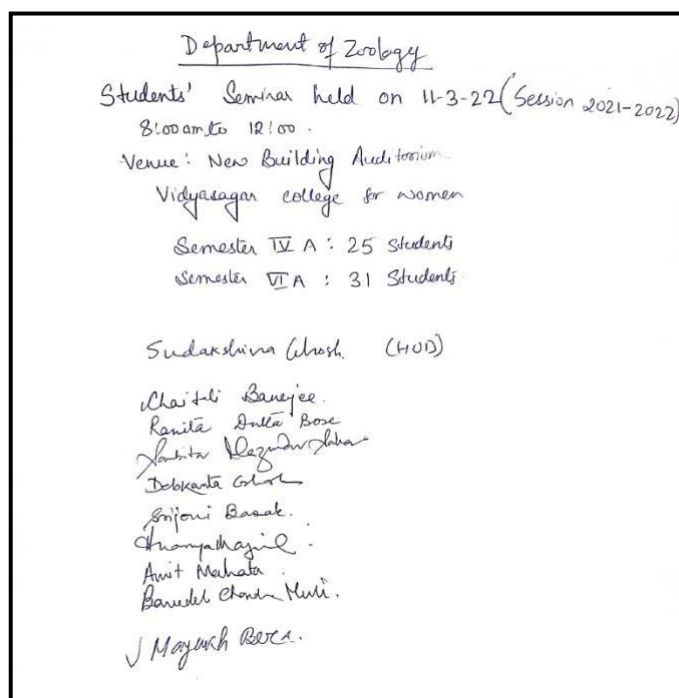 Department of Zoology
Students' Seminar held on 11-3-22 (Session 2021-2022)
8:00 am to 12:00.
Venue: New Building Auditorium
Vidyasagar college for women
Semester IV A : 25 Students
Semester VI A : 31 Students
Sudakshina Ghosh. (HOD)
Chaitali Banerjee.
Ranita Dutta Bose
Debkanta Ghosh
Srijoni Basak.
Amit Mahata.
Chandra
Mayukh Bera.